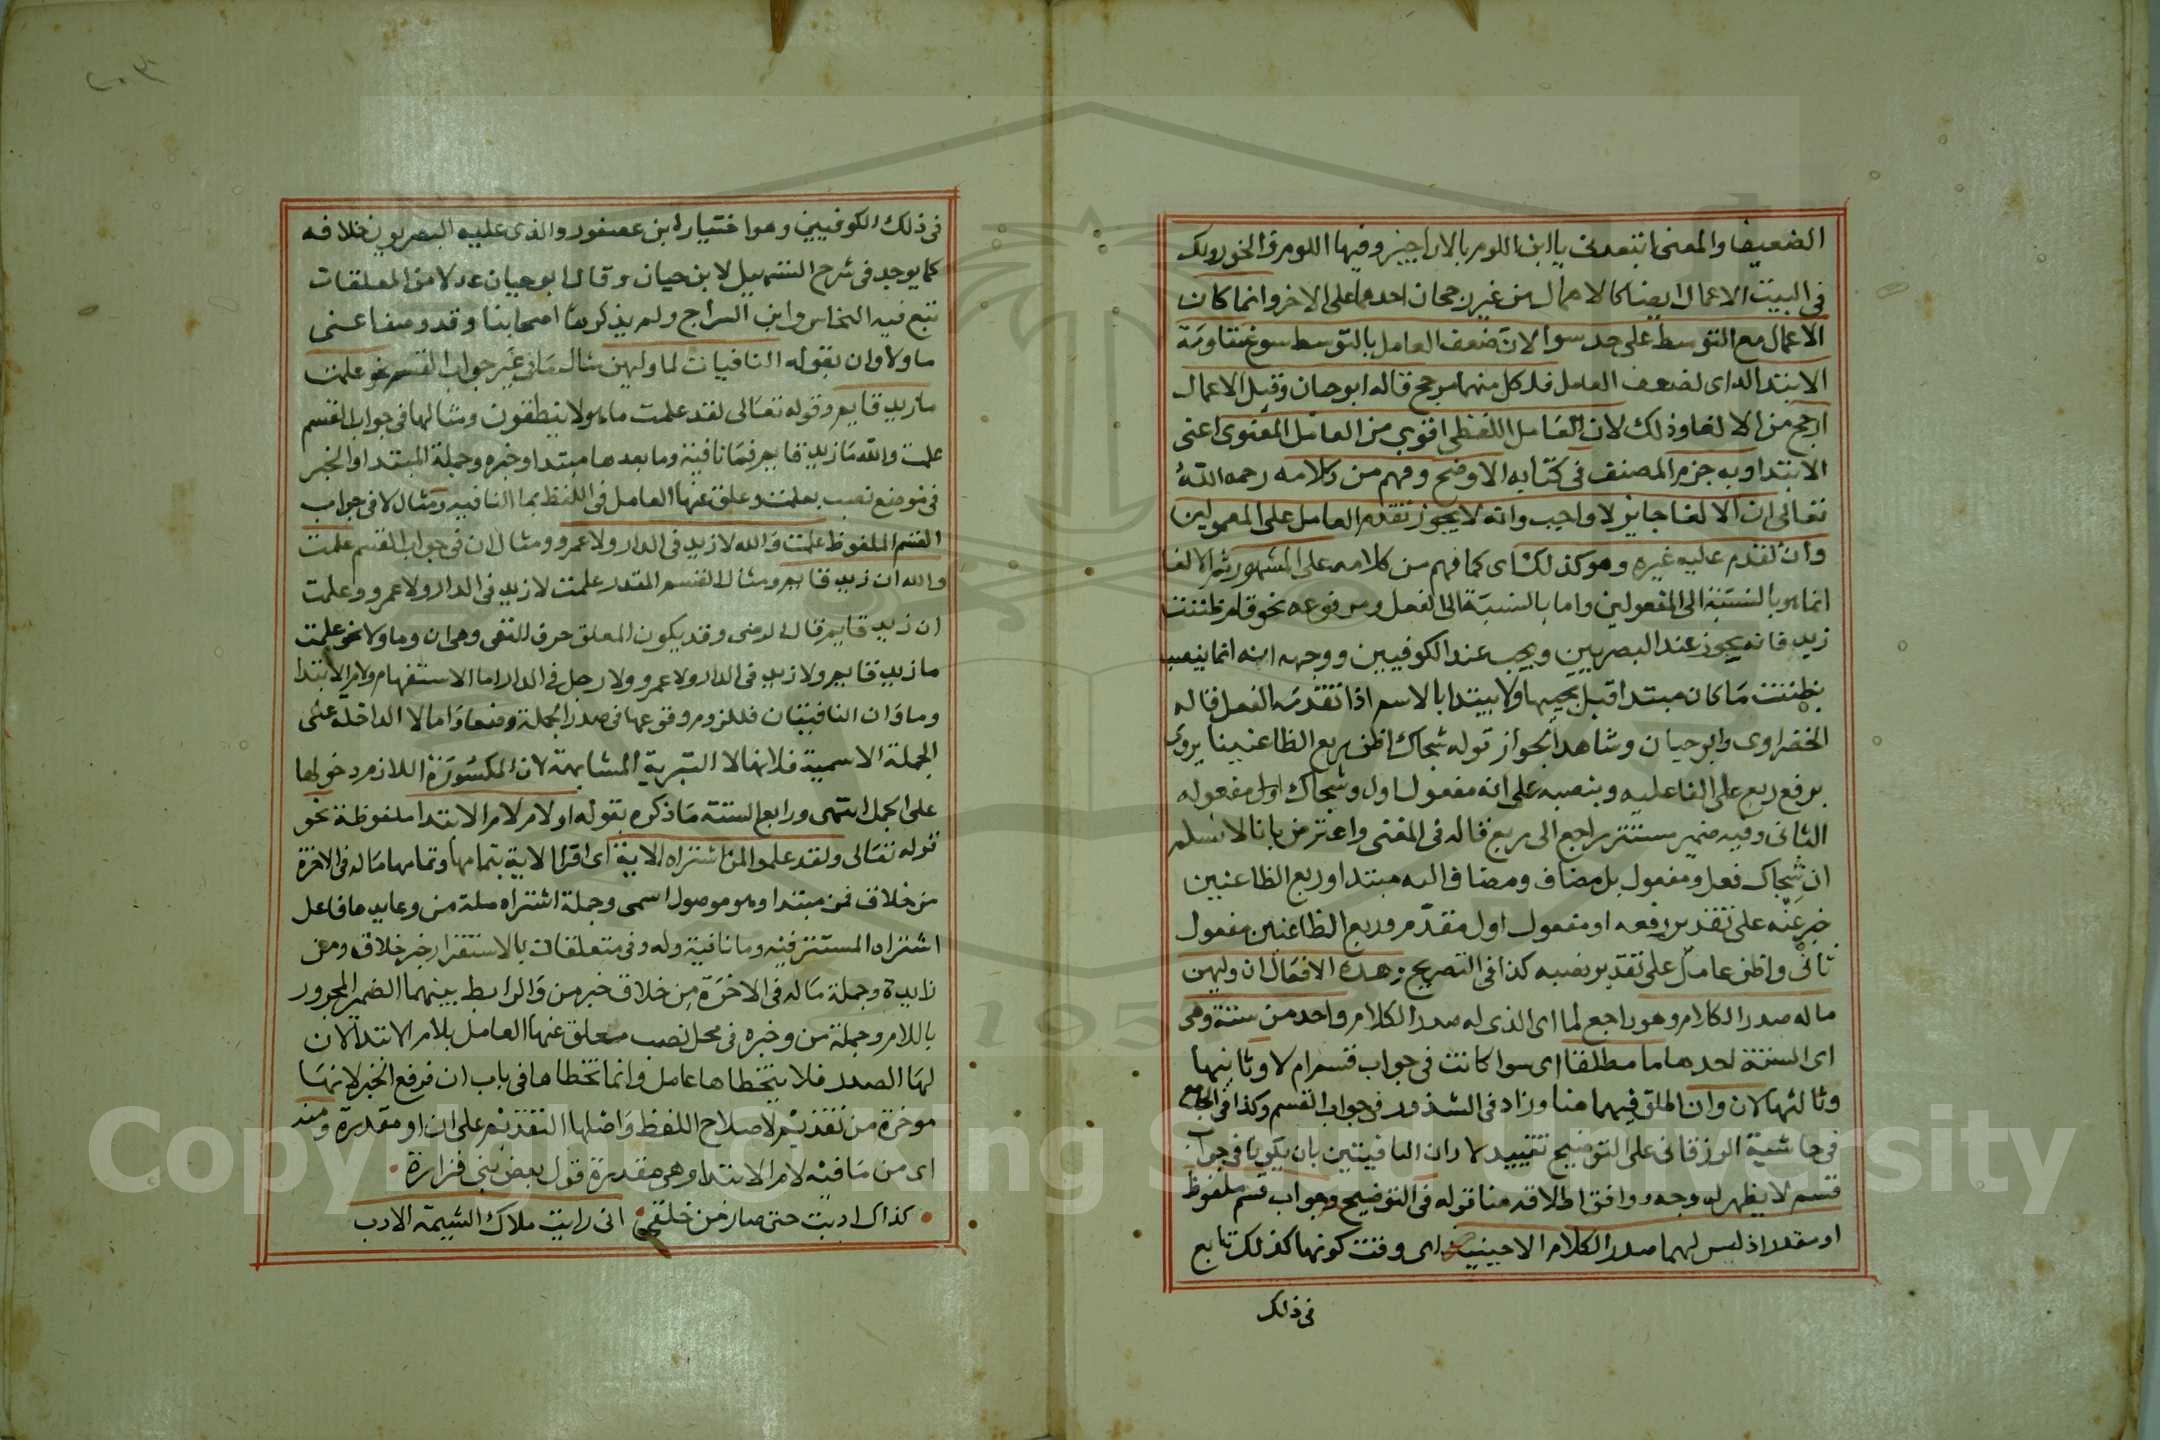 الضعيف والمعنى اتتعدنى يا ابن اللوم بالاراجيز وفيها اللوم والخور ويك
في البيت الاعمال ايضا كالاهمال من غير رجحان احدهما على الاخر وانما كان
الاعمال مع التوسط على حد سوا لان ضعف العامل بالتوسط سوغ مقاومة
الابتدا له اى لضعف العامل فلكل منهما مرجح قاله ابو حيان وقيل الاعمال
ارجح من الالغا وذلك لان العامل اللفظي اقوى من العامل المعنوى اعنى
الابتدا وبه جزم المصنف في كتابه الاوضح وفهم من كلامه رحمه الله
تعالى ان الالغا جايز لا واجب وانه لا يجوز تقدم العامل على المعمولين
وان تقدم عليه غيره وهو كذلك اى كما فهم من كلامه على المشهور ثم الالغا
انما هو بالنسبة الى المفعولين واما بالنسبة الى الفعل ومرفوعه نحو قام ظننت
زيد فانه يجوز عند البصريين ويجب عند الكوفيين ووجهه انه انما ينصب
بظننت ما كان مبتدا قبل مجيها ولا يبتدا بالاسم اذا تقدمه الفعل قاله
الخضراوى وابو حيان وشاهد الجواز قوله شجاك اظن ربع الظاعنينا يروى
برفع ربع على الفاعلية وبنصبه على انه مفعول اول وشجاك اول مفعوله
الثانى وفيه ضمير مستتر راجع الى ربع قاله في المغنى واعترض بانا لا نسلم
ان شجاك فعل ومفعول بل مضاف ومضاف اليه مبتدا وربع الظاعنين
خبر عنه على تقدير رفعه او مفعول اول مقدم وربع الظاعنين مفعول
ثانى واظن عامل على تقدير نصبه كذا في التصريح وهذه الافعال ان وليهن
ما له صدر الكلام وهو راجع لما اى الذى له صدر الكلام واحد من ستة وهى
اى الستة احدها ما مطلقا اى سوا كانت في جواب قسم ام لا وثانيها
وثالثها لان وان الملق فيهما هنا وزاد في الشذور في جواب القسم وكذا في الجامع
في حاشية الزرقانى على التوضيح تقييد لا وان النافيتين بان يكونا في جواب
قسم لا يظهر له وجه ووافق اطلاقه هنا قوله في التوضيح وجواب قسم ملفوظ
او مقدر اذ ليس لهما صدر الكلام الا حينيذ اى وقت كونها كذلك تابع
في ذلك
في ذلك الكوفيين وهو اختيار ابن عصفور والذى عليه البصريون خلافه
كما يوجد في شرح التسهيل لابن حيان وقال ابو حيان عد لا من المعلقات
تتبع فيه النحاس وابن السراج ولم يذكرها اصحابنا وقد وصفا عنى
ما ولا وان بقوله النافيات لما وليهن مثال ما في غير جواب القسم نحو علمت
ما زيد قايم وقوله تعالى لقد علمت ما هولا ينطقون ومثالها في جواب القسم
علمت والله ما زيد قايم فما نافية وما بعدها مبتدا وخبره وجملة المبتدا والخبر
في موضع نصب بعلمت وعلق عنها العامل في اللفظ بما النافيه ومثال لا في جواب
القسم الملفوظ علمت والله لا زيد في الدار ولا عمرو ومثال ان في جواب القسم علمت
والله ان زيد قايم ومثال القسم المقدر علمت لا زيد في الدار ولا عمرو وعلمت
ان زيد قايم قال الرضى وقد يكون المعلق حرف النفى وهى ان وما ولا نحو علمت
ما زيد قايم ولا زيد في الدار ولا عمرو ولا رجل في الدار اما الاستفهام ولام الابتدا
وما وان النافيتان فللزوم وقوعها في صدر الجملة وضعا واما لا الداخلة على
الجملة الاسمية فلانها لا التبرية المشابهة لان المكسورة اللازم دخولها
على الجمل انتهى ورابع الستة ما ذكره بقوله او لام لام الابتدا ملفوظة نحو
قوله تعالى ولقد علموا لمن اشتراه الاية اى اقرا الاية بتمامها وتمامها ماله في الاخرة
من خلاق فمن مبتدا وهو موصول اسمى وجملة اشتراه صلة من وعايدها فاعل
اشتراه المستتر فيه وما نافية وله وفي متعلقان بالاستقرار خبر خلاق ومن
زايدة وجملة ماله في الاخرة من خلاق خبر من والرابط بينهما الضمير المجرور
باللام وجملة من وخبره في محل نصب معلق عنها العامل بلام الابتدا لان
لها الصدر فلا يتخطاها عامل وانما تخطاها في باب ان فرفع الخبر لانها
موخرة من تقديم لاصلاح اللفظ واصلها التقديم على ان او مقدرة ومنه
اى من ما فيه لام الابتدا وهى مقدرة قول بعض بنى فزارة
كذاك ادبت حتى صار من خلقى انى رايت ملاك الشيمة الادب
٢٠٣
Copyright © King Saud University
1957